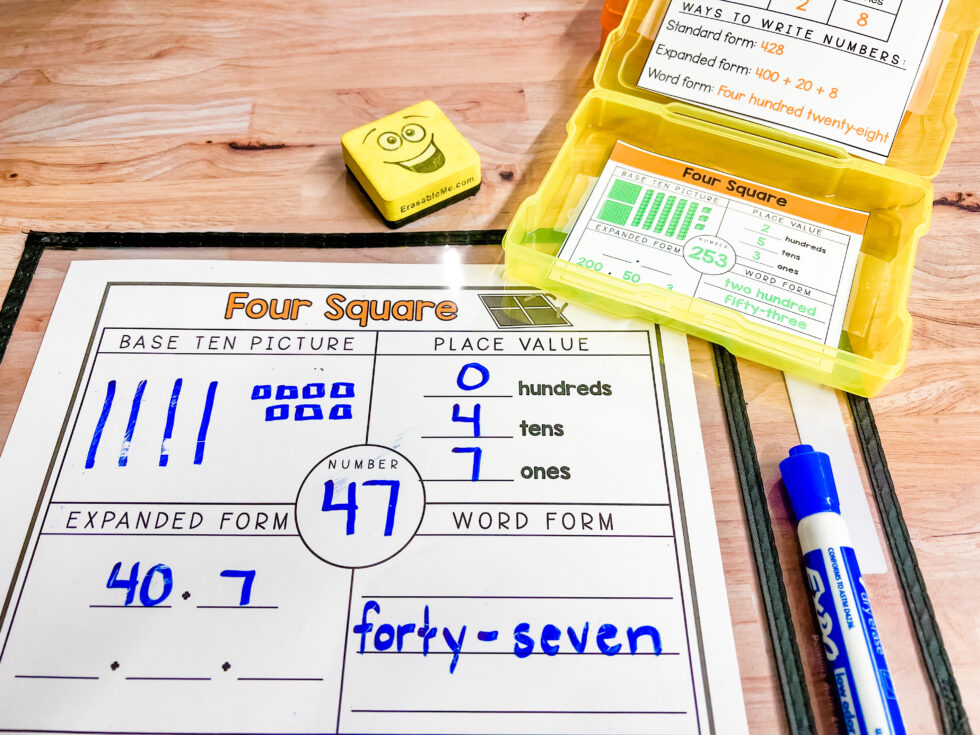 2
8
WAYS TO WRITE NUMBERS:
Standard form: 428
Expanded form: 400 + 20 + 8
Word form: Four hundred twenty-eight
ErasableMe.com
Four Square
BASE TEN PICTURE
PLACE VALUE
2 hundreds
5 tens
3 ones
NUMBER
253
EXPANDED FORM
200 + 50 3
WORD FORM
two hundred
fifty-three
Four Square
BASE TEN PICTURE
PLACE VALUE
0 hundreds
4 tens
7 ones
NUMBER
47
EXPANDED FORM
40 + 7
+ +
WORD FORM
forty-seven
CONFORMS TO ASTM D4236
EXPO
dry erase
low odor